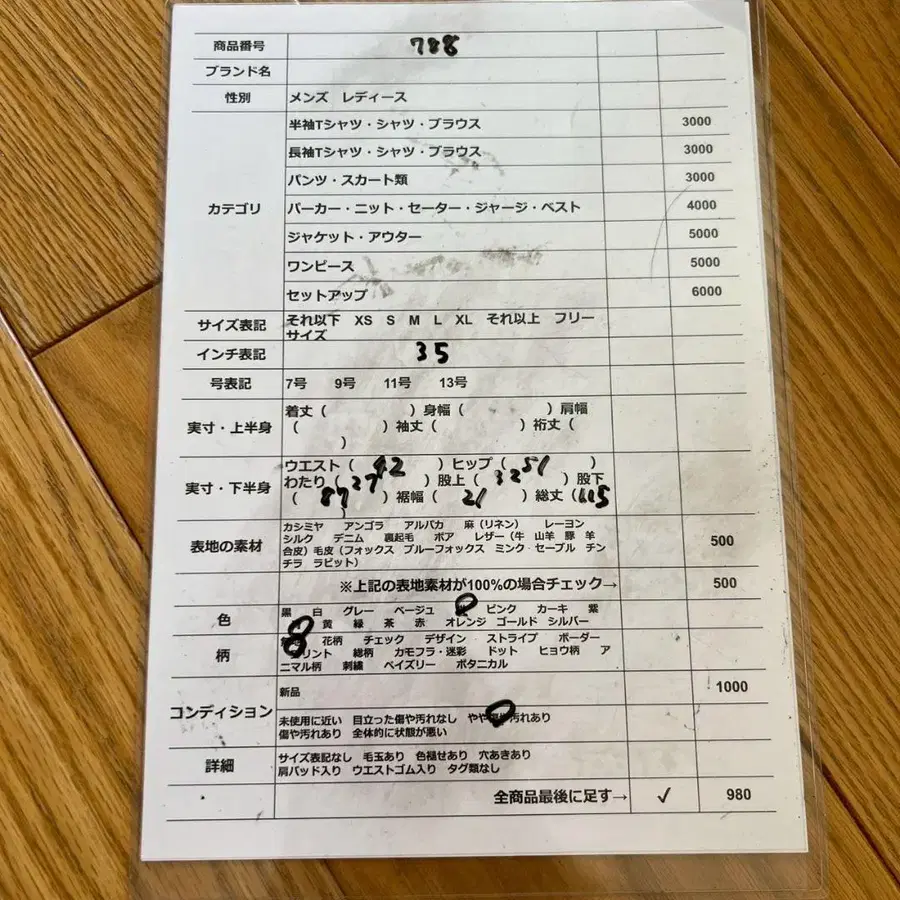 商品番号 788
ブランド名
性別 メンズ レディース
カテゴリ
半袖Tシャツ・シャツ・ブラウス 3000
長袖Tシャツ・シャツ・ブラウス 3000
パンツ・スカート類 3000
パーカー・ニット・セーター・ジャージ・ベスト 4000
ジャケット・アウター 5000
ワンピース 5000
セットアップ 6000
サイズ表記 それ以下 XS S M L XL それ以上 フリー
サイズ
インチ表記 35
号表記 7号 9号 11号 13号
実寸・上半身
着丈( )身幅( )肩幅
( )袖丈( )裄丈(
)
実寸・下半身
ウエスト( 42 )ヒップ( 51 )
わたり( 27 )股上( 32 )股下
( 87 )裾幅( 21 )総丈( 115
)
表地の素材
カシミヤ アンゴラ アルパカ 麻(リネン) レーヨン
シルク デニム 裏起毛 ボア レザー(牛 山羊 豚 羊 500
合皮)毛皮(フォックス ブルーフォックス ミンク・セーブル チン
チラ ラビット)
※上記の表地素材が100%の場合チェック→ 500
色
黒 白 グレー ベージュ ピンク カーキ 紫
黄 緑 茶 赤 オレンジ ゴールド シルバー
柄
花柄 チェック デザイン ストライプ ボーダー
プリント 総柄 カモフラ・迷彩 ドット ヒョウ柄 ア
ニマル柄 刺繍 ペイズリー ボタニカル
コンディション
新品 1000
未使用に近い 目立った傷や汚れなし やや 汚れあり
傷や汚れあり 全体的に状態が悪い
詳細
サイズ表記なし 毛玉あり 色褪せあり 穴あきあり
肩パッド入り ウエストゴム入り タグ類なし
全商品最後に足す→ ✓ 980